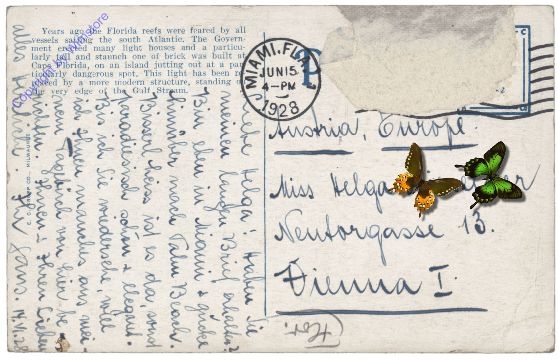 Years ago the Florida reefs were feared by all
vessels sailing the south Atlantic. The Govern-
ment erected many light houses and a particu-
larly tall and staunch one of brick was built at
Cape Florida, on an island jutting out at a par-
ticularly dangerous spot. This light has been re-
placed by a more modern structure, standing on
the very edge of the Gulf Stream.
MIAMI, FLA.
JUN 15
4-PM
1928
1
Austria, Europe.
Miss Helga
Neutorgasse 13.
Vienna I.
Liebe Helga! Haben Sie
meinen langen Brief erhalten?
Bin eben in Miami & gucke
hinüber nach Palm Beach.
heiss ist es da, sonst
paradiesisch schön & elegant.
Bis ich Sie wiedersehe will
ich Ihnen manches aus mei-
nem
von hier be-
richten. Ihnen & Ihren Lieben
alles
Ihr Hans.
Copyright by